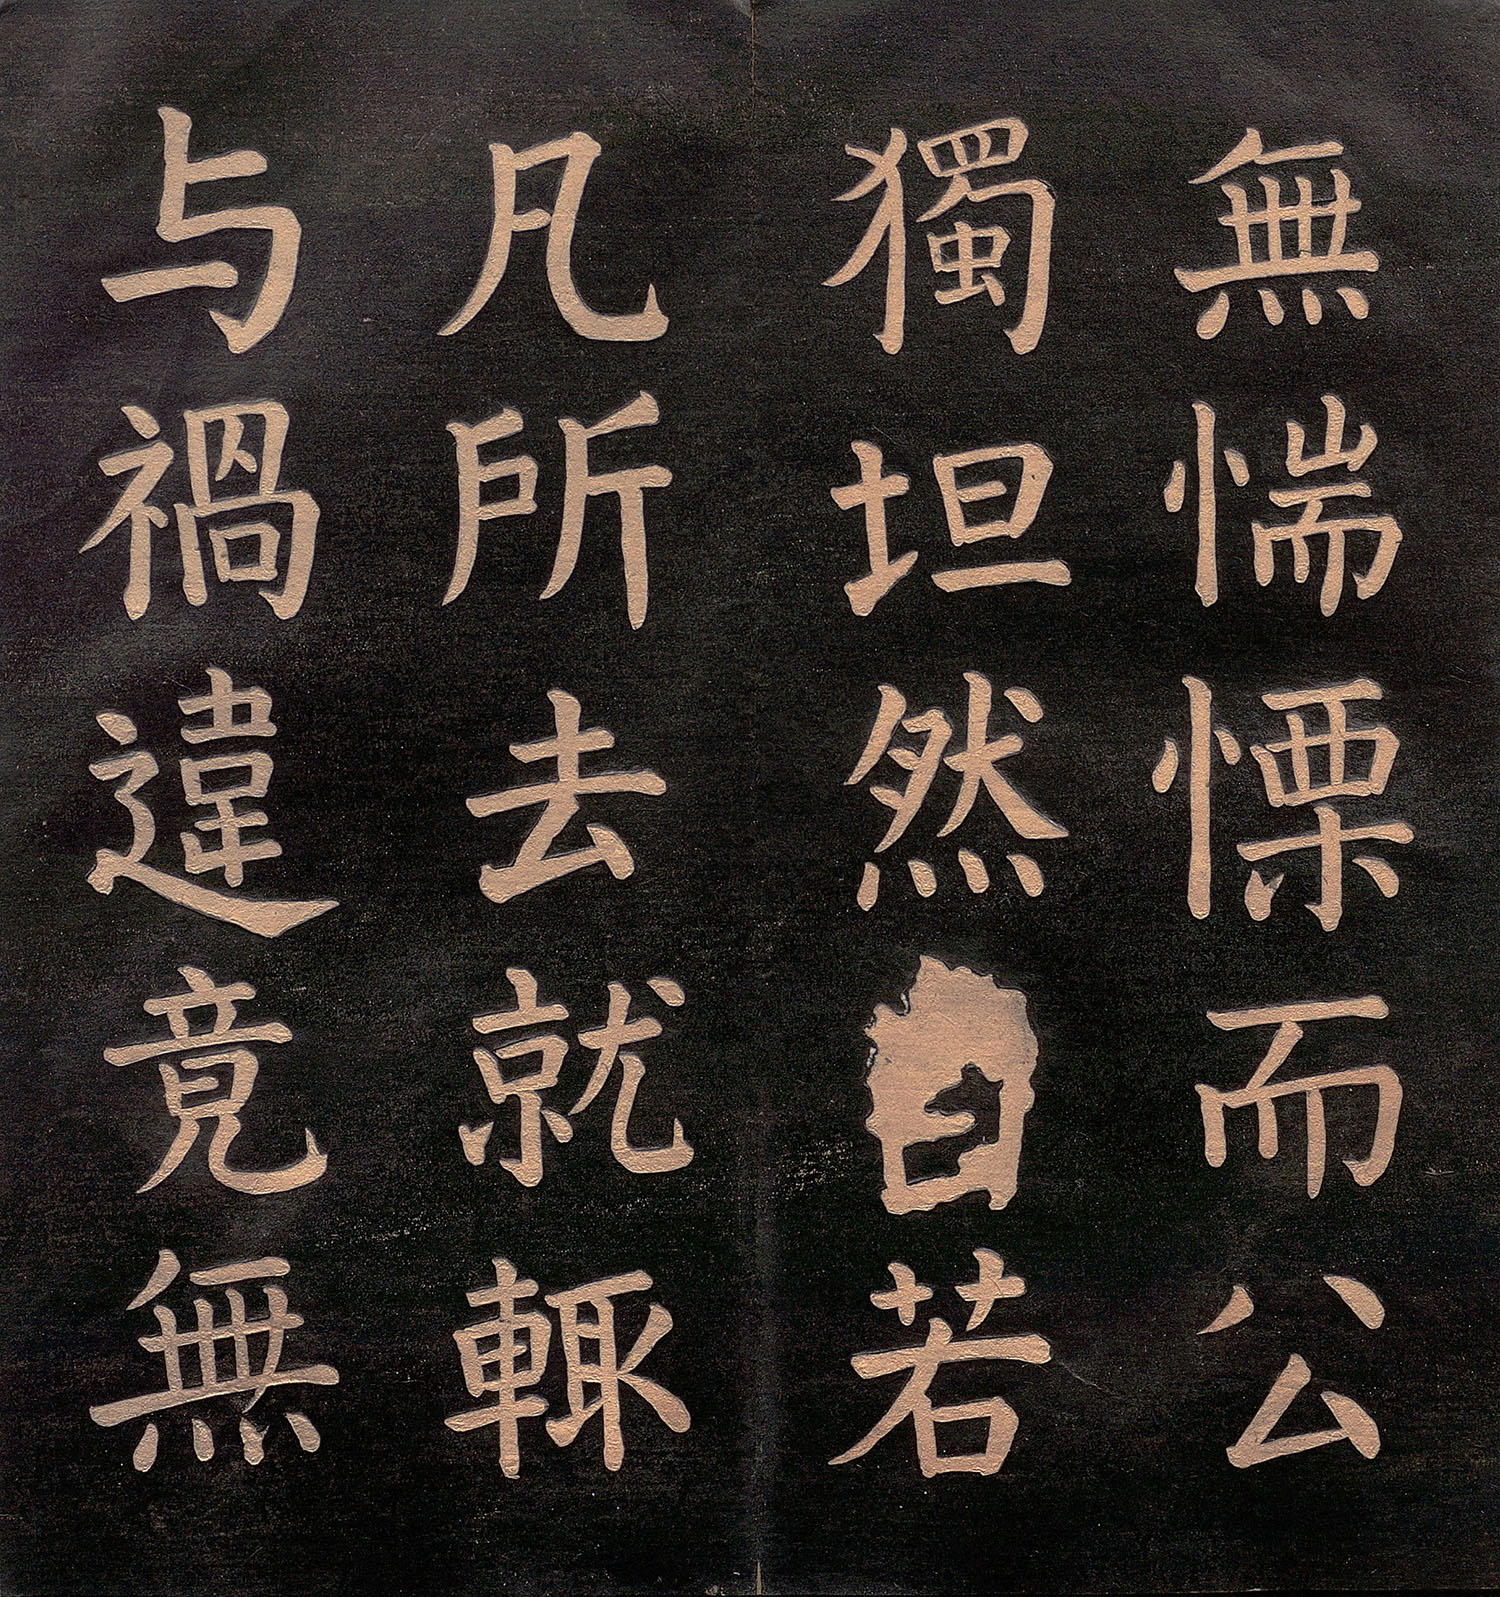 無惴慄而公
獨坦然自若
凡所去就輒
与禍違竟無